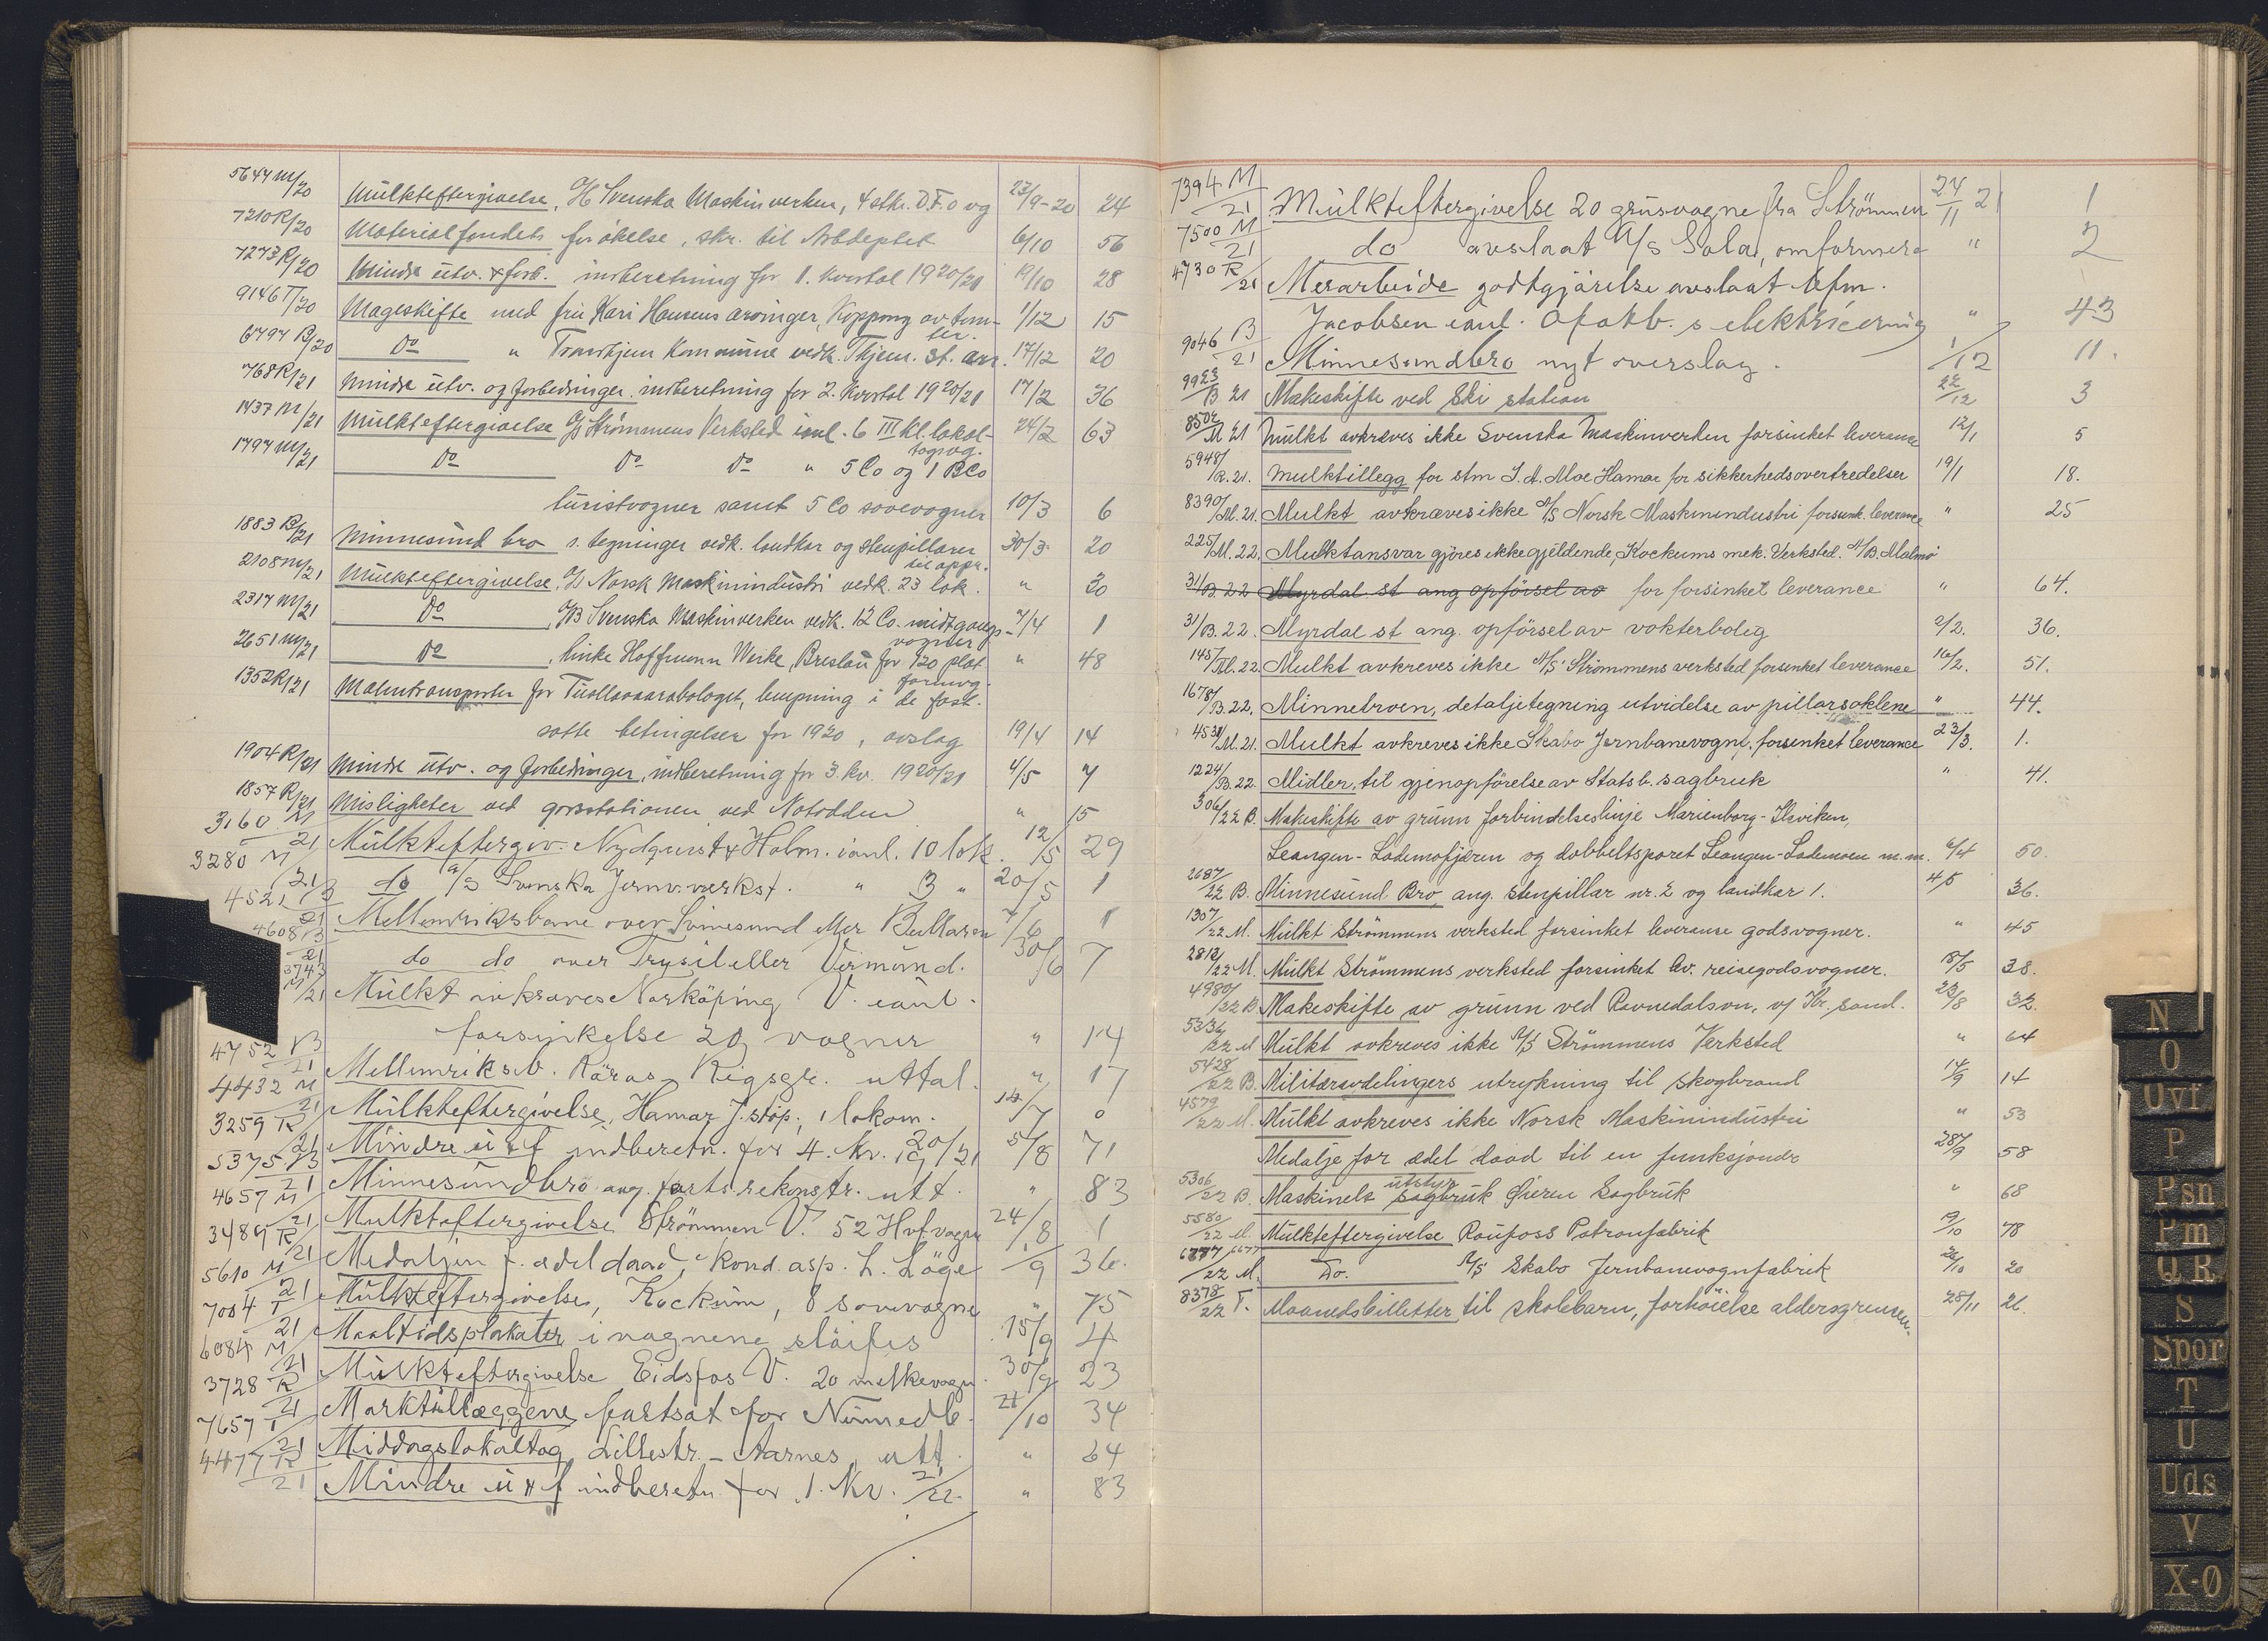 5647 M/20 Mulkteftergivelse, A/B Svenska Maskinverken, 4 stk. D.F.o vg 23/9-20 24
7210 R/20 Materialfondets forøkelse, skr. til Arbdeptet 6/10 56
7273 R/20 Mindre utv. & forb. indberetning for 1. kvartal 1920/21 19/10 28
9146 T/20 Mageskifte med fru Kari Hansens arvinger, Koppang av tom- 1/12 15
ter.
6797 B/20 Do " Trondhjem Kommune vedk. Thjem. st. arr. 17/12 20
768 R/21 Mindre utv. og forbedringer, indberetning for 2. kvartal 1920/21 17/2 36
1437 M/21 Mulkteftergivelse A/S Strømmens Verksted i anl. 6 III kl. lokal- 24/2 63
togsvg.
1797 M/21 Do Do Do " 5 Co og 1 BCo
turistvogner samt 5 Co sovevogner 10/3 6
1883 B/21 Minnesund bro s. tegninger vedk. landkar og stenpillarer 30/3 20
til appr.
2108 M/21 Mulkteftergivelse, A/S Norsk Maskinindustri vedk. 23 lok. " 30
2317 M/21 Do A/B Svenska Maskinverken vedk. 12 Co. midtgangs- 7/4 1
vogner
2651 M/21 Do , Linke Hoffmann Werke, Breslau for 120 plat- " 48
formvg.
1352 R/21 Malmtransporter for Tuollavaarabolaget, lempning i de fast-
satte betingelser for 1920, avslag 19/4 14
1904 R/21 Mindre utv. og forbedringer, indberetning for 3. kv. 1920/21 4/5 7
1857 R/21 Misligheter ved godsstationen ved Notodden " 15
3160 M/21 Mulkteftergiv. Nydquist & Holm. i anl. 10 lok. 12/5 29
3280 M/21 do A/S Svenska Jernv.verkst. " 3 " 20/5 1
4521 B/21 Mellemriksbane over Svinesund eller Bullaren 7/6 1
4608 B/21 do do over Trysil eller Vermund. 30/6 7
3743 M/21 Mulkt avkræves Norköping V. i anl.
forsinkelse 20 vogner " 14
4752 B/21 Mellemriksb. Röros Rigsgr. uttal. " 17
4432 M/21 Mulkteftergivelse, Hamar J.støp., 1 lokom. 14/7 0
3259 R/21 Mindre u & f indberetn. for 4. Kv. 1920/21 5/8 71
5375 B/21 Minnesundbro ang. forts. rekonstr. utt. " 83
4657 M/21 Mulkteftergivelse Strömmen V. 52 Hvf vogne 24/8 1
3489 R/21 Medaljen f. ædel daad, kond. asp. L. Löge 1/9 36.
5610 M/21 Mulkteftergivelse, Kockum, 8 sovevogne " 75
7004 T/21 Maaltidsplakater i vognene sløifes 15/9 4
6084 M/21 Mulkteftergivelse Eidsfos V. 20 melkevogn. 30/9 23
3728 R/21 Marktillæggene fortsat for Numedb. 21/10 34
7657 T/21 Middagslokaltog Lillestr. - Aarnes, utt. " 64
4477 R/21 Mindre u & f indberetn. for 1. Kv. 21/22. " 83
7394 M/21 Mulkteftergivelse 20 grusvogne fra Strömmen 24/11 21 1
7500 M/21 do avslaat A/S Sola, omformere " 2
4730 R/21 Merarbeide godtgjörelse avslaat bfm.
Jacobsen i anl. Ofotb. s elektricering " 43
9046 B/21 Minnesundbro nyt overslag. 1/12 11.
9923/B 21 Makeskifte ved Ski station 22/12 3
8502/M 21 Mulkt avkreves ikke Svenska Maskinverken forsinket leveranse 12/1 5
5948/R. 21. Mulktillegg for stm J. A. Moe Hamar for sikkerhedsovertredelser 19/1 18.
8390/M. 21. Mulkt avkræves ikke A/S Norsk Maskinindustri forsink. leveranse " 25
225/M. 22. Mulktansvar gjöres ikke gjeldende, Kockums mek. Verksted. A/B. Malmö
31/B. 22 Myrdal st ang opförsel av for forsinket leverance " 64.
31/B. 22. Myrdal st ang. opförsel av vokterbolig 2/2. 36.
145/M. 22. Mulkt avkreves ikke A/S Strømmens verksted forsinket leverance 16/2. 51.
1678/B. 22. Minnebroen, detaljetegning utvidelse av pillarsoklene " 44.
4531/M. 21. Mulkt avkreves ikke Skabo Jernbanevogne, forsinket leverance 23/3. 1.
1224/B. 22. Midler, til gjenopförelse av Statsb. sagbruk " 41.
306/22 B. Makeskifte av grunn forbindelseslinje Marienborg - Ilsviken,
Leangen - Lademofjæren og dobbeltsporet Leangen - Lademoen m.m. 6/4 50.
2687/22 B. Minnesund Bro, ang. stenpillar nr. 2 og landkar 1. 4/5 36.
1307/22 M. Mulkt Strömmens verksted forsinket leveranse godsvogner. " 45
2812/22 M. Mulkt Strömmens verksted forsinket lev. reisegodsvogner. 18/5 38.
4980/22 B Makeskifte av grunn ved Ravnedalsvn, v/ Kr.sand. 23/8 32.
5336/22 M Mulkt avkreves ikke A/S Strömmens Verksted " 64
5428/22 B. Militæravdelingers utrykning til skogbrand 14/9 14
4579/22 M. Mulkt avkreves ikke Norsk Maskinindustri " 53
Medalje for ædel daad til en funksjonær 28/9 58
utstyr
5306/22 B. Maskinelt sagbruk Øieren Sagbruk " 68
5580/22 M. Mulkteftergivelse Raufoss Patronfabrik 19/10 78
6777 6677/22 M. Do. A/S Skabo Jernbanevognfabrik 26/10 20
8378/22 T. Maanedsbilletter til skolebarn, forhöielse aldersgrensen. 25/11 26.
N
O
Ovf
P
Psn
Pm
Q R
S
Spor
T
U
Uds
V
X-Ø